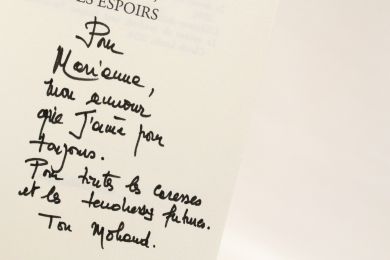 ES ESPOIRS
Pour
Marianne,
mon amour
que J'aime pour
toujours.
Pour toutes les caresses
et les tendresses futures.
Ton Mohand.